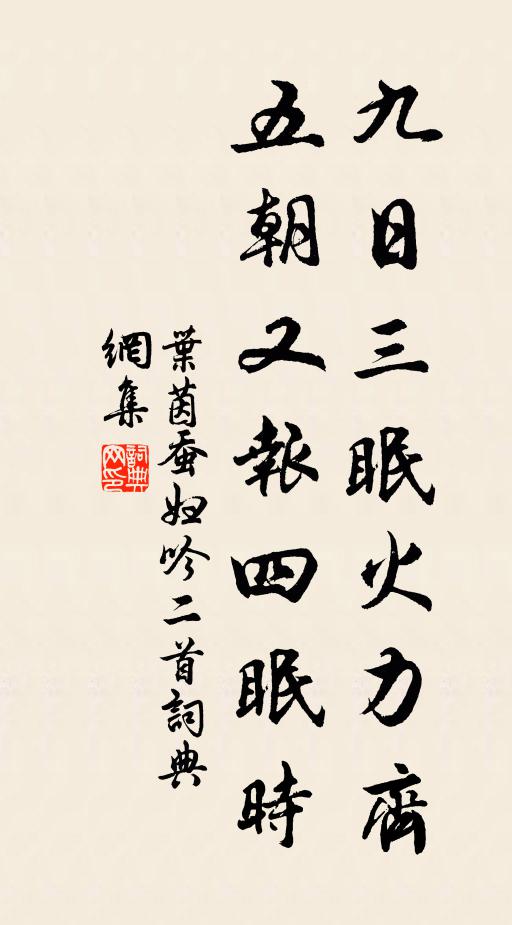 九日三眠火力齊
五朝又報四眠時
葉茵蚕婦吟二首詞典
網集
詞典网印